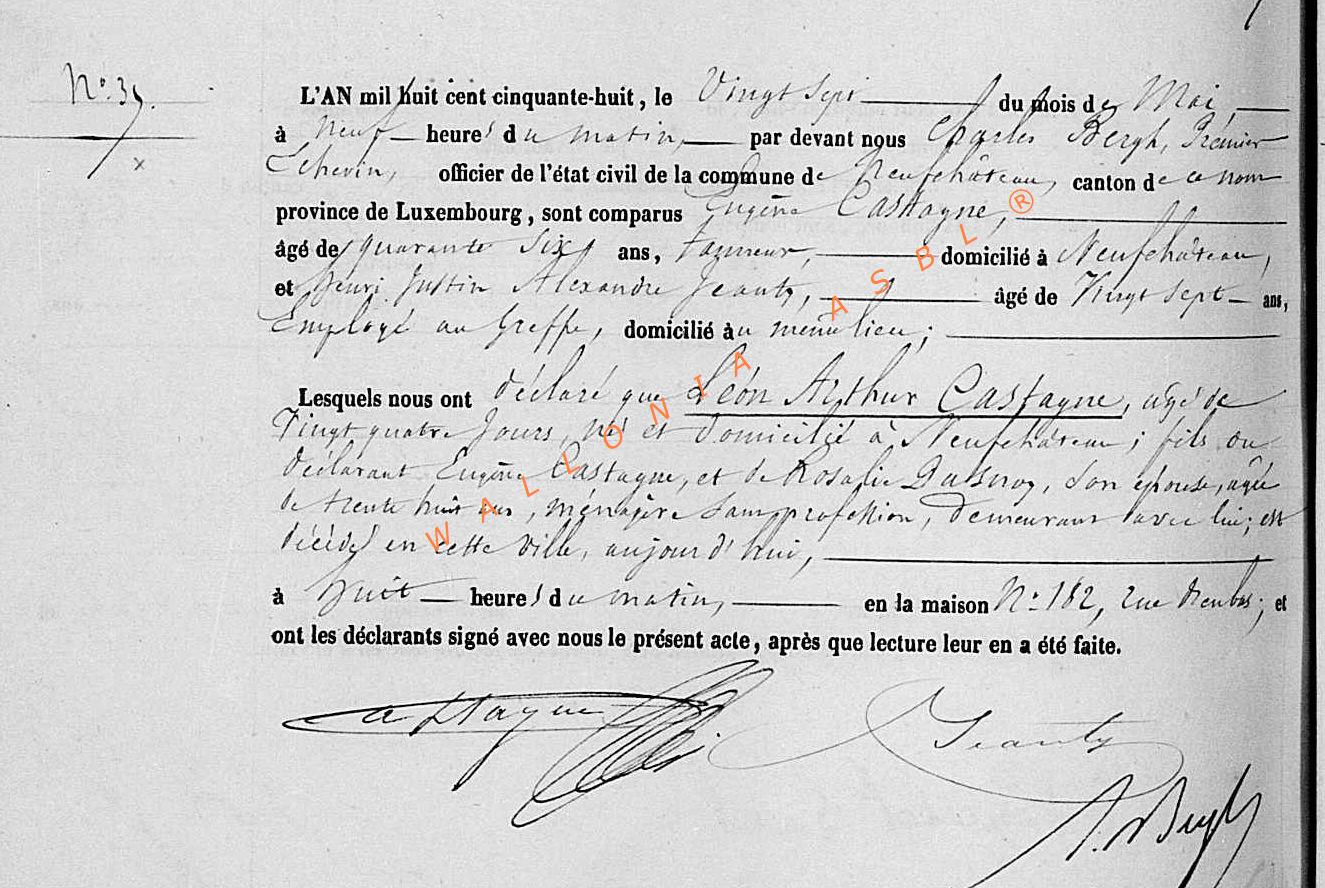 N° 39.
L'AN mil huit cent cinquante-huit, le Vingt Sept du mois de Mai,
à Neuf heures du matin, par devant nous Charles Bergh, Prémier
Echevin, officier de l'état civil de la commune de Neufchâteau, canton de ce nom
province de Luxembourg, sont comparus Eugène Castagne,
âgé de quarante Six ans, tanneur, domicilié à Neufchâteau,
et Henri Justin Alexandre Jeanty, âgé de Vingt Sept ans,
Employé au Greffe, domicilié au même lieu;
Lesquels nous ont déclaré que Léon Arthur Castagne, âgé de
Vingt quatre Jours, né et domicilié à Neufchâteau; fils du
déclarant Eugène Castagne, et de Rosalie Dasnoy, Son épouse, agée
de trente huit ans, ménagère Sans profession, demeurant avec lui; est
décédé en cette Ville, aujourd'hui,
à huit heures du matin, en la maison N° 182, rue ; et
ont les déclarants signé avec nous le présent acte, après que lecture leur en a été faite.
Castagne
Jeanty
Bergh
WALLONIA ASBL ®